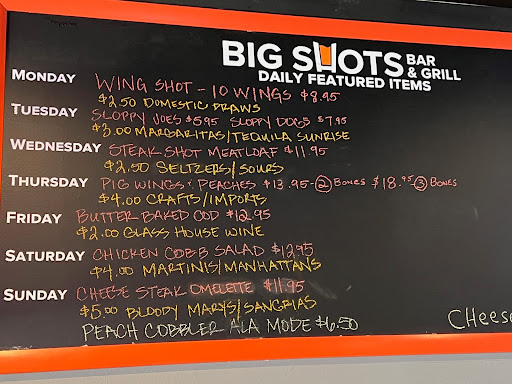 BIG SHOTS BAR & GRILL
DAILY FEATURED ITEMS
MONDAY WING SHOT - 10 WINGS $8.95
$2.50 DOMESTIC DRAWS
TUESDAY SLOPPY JOES $5.95 SLOPPY DOGS $7.95
$3.00 MARGARITAS/TEQUILA SUNRISE
WEDNESDAY STEAK SHOT MEATLOAF $11.95
$2.50 SELTZERS/SOURS
THURSDAY PIG WINGS & PEACHES $13.95 - 2 BONES $18.95 3 BONES
$4.00 CRAFTS/IMPORTS
FRIDAY BUTTER BAKED COD $12.95
$2.00 GLASS HOUSE WINE
SATURDAY CHICKEN COBB SALAD $12.95
$4.00 MARTINIS/MANHATTANS
SUNDAY CHEESE STEAK OMELETTE $11.95
$5.00 BLOODY MARYS/SANGRIAS
PEACH COBBLER ALA MODE $6.50
CHEESE